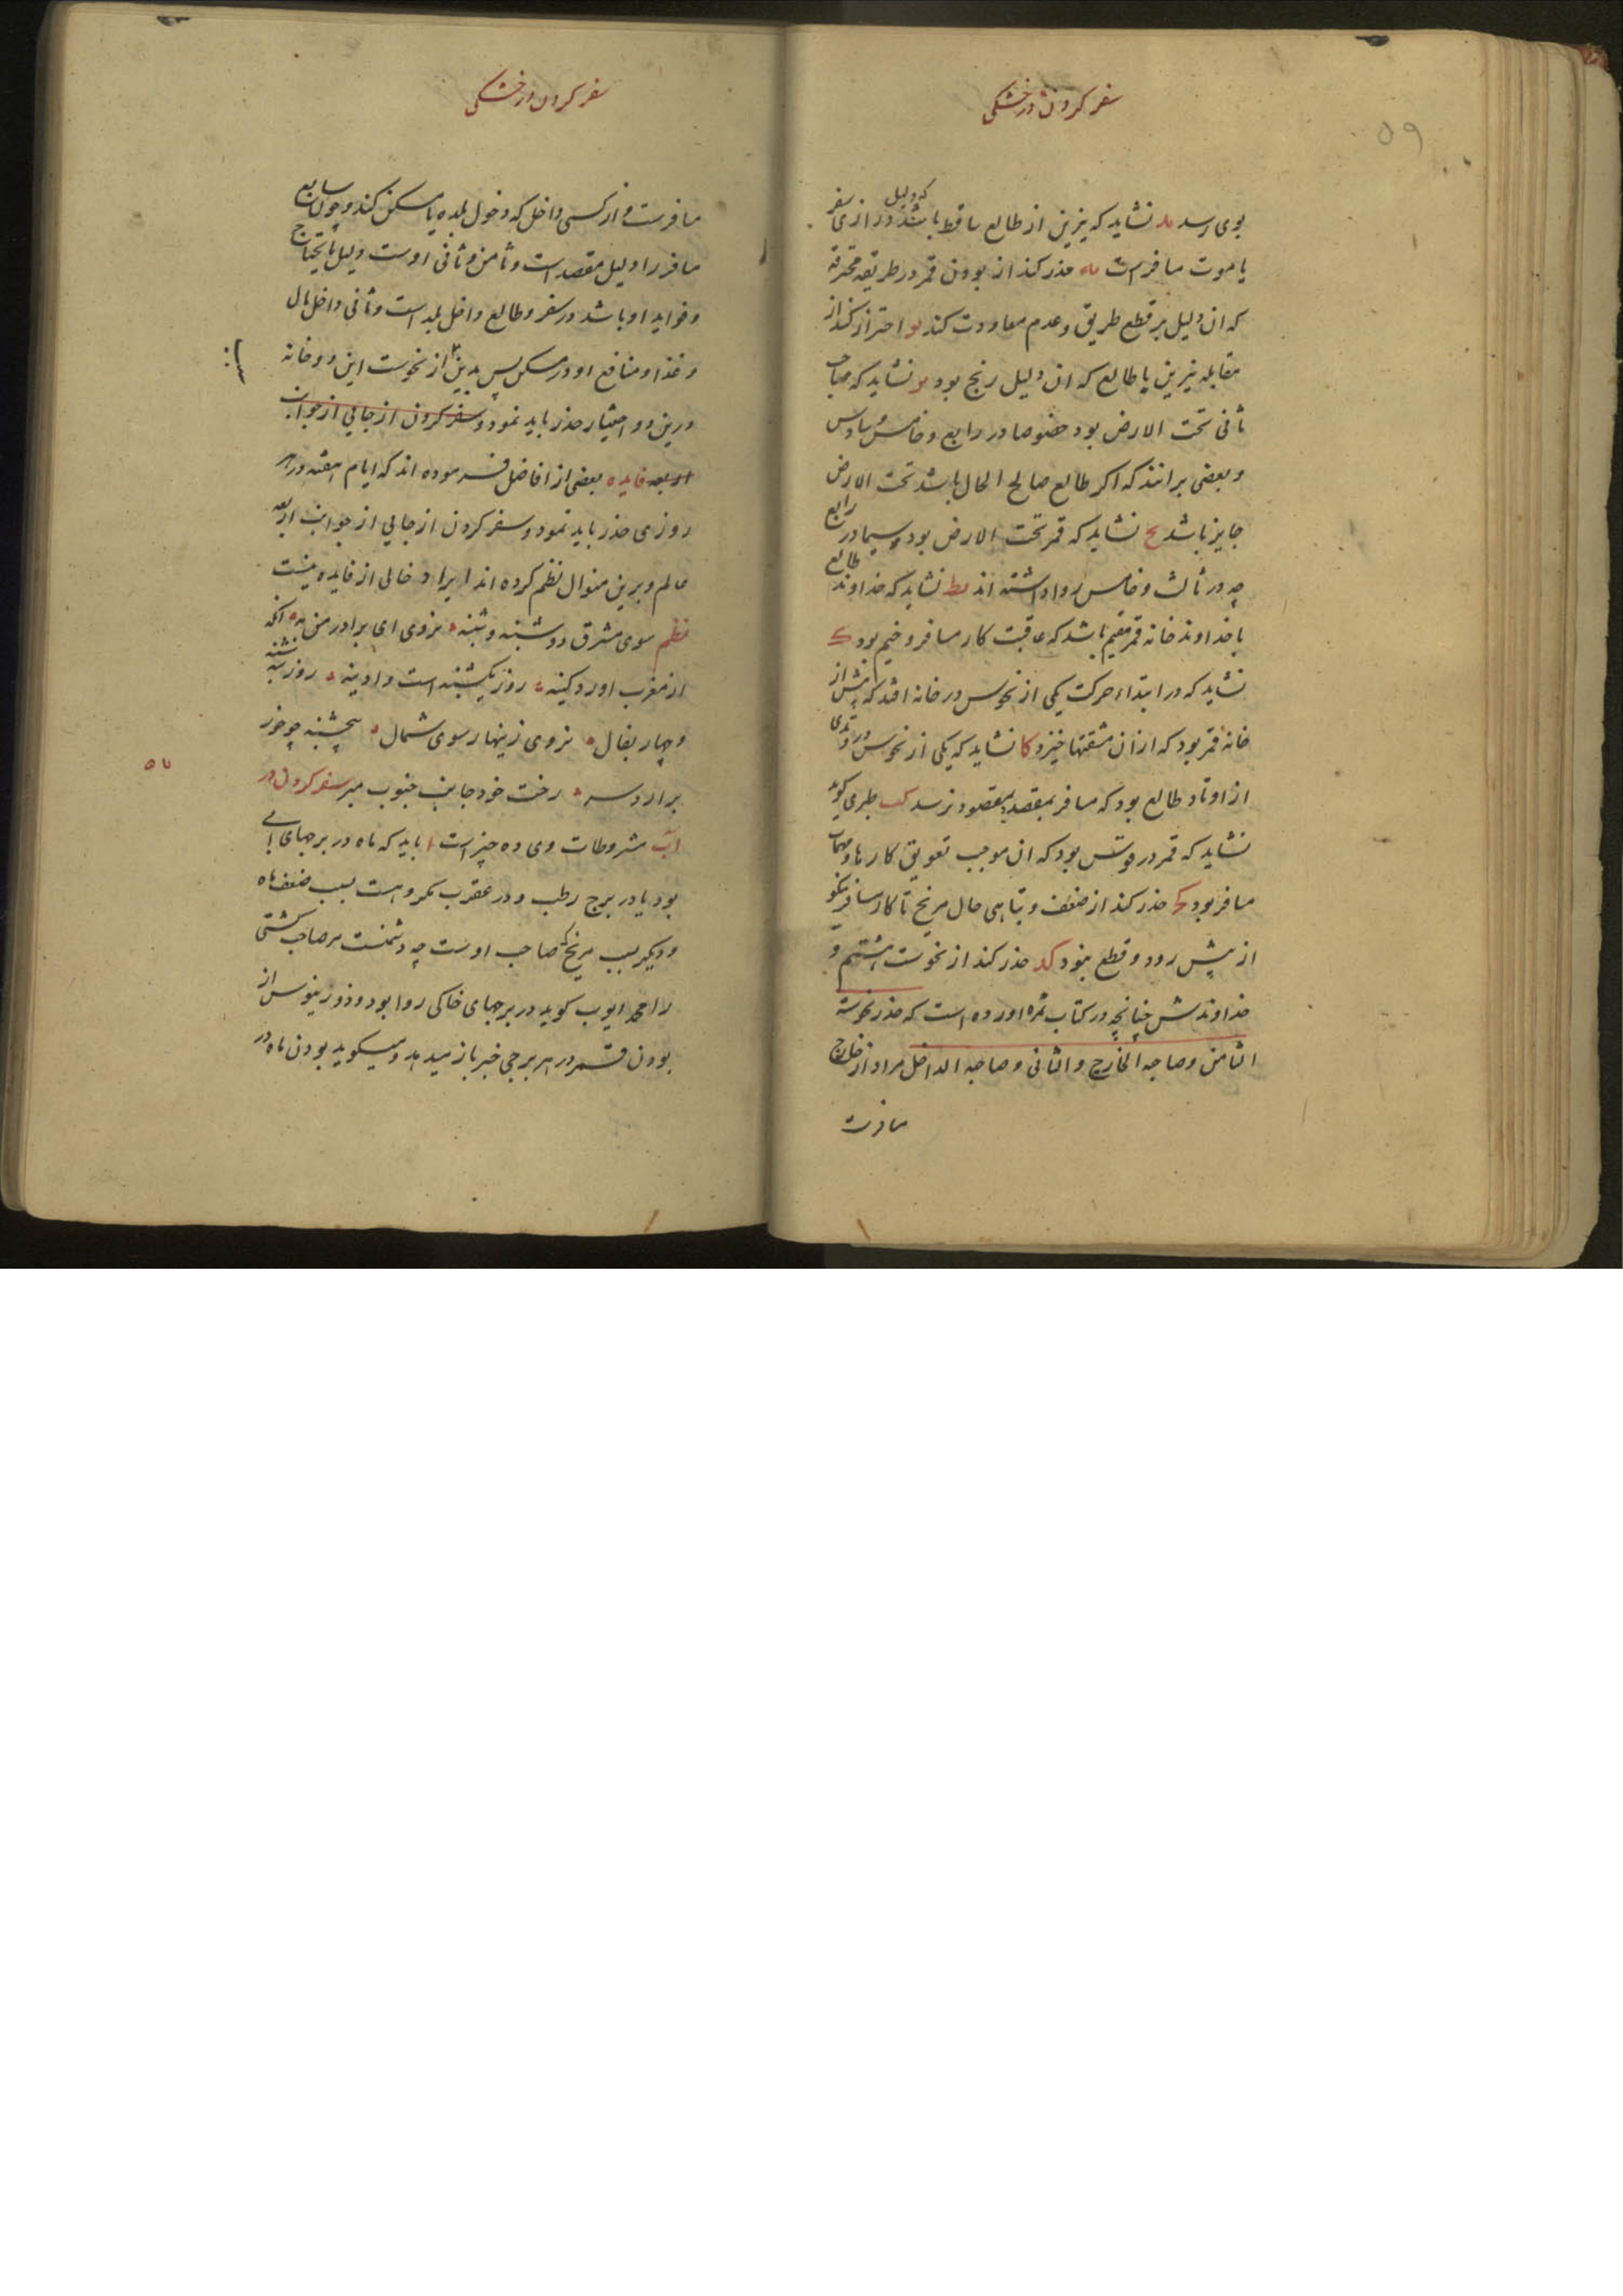 سفر کردن در خشکی
۵۹
که دلیل
بوی رسد ید نشاید که نیرین از طالع ساقط باشند درازی سفر
یا موت مسافر است یه حذر کند از بودن قمر در طریقه محترقه
که ان دلیل بر قطع طریق و عدم معاودت کند یو احتراز کند از
مقابله نیرین با طالع که ان دلیل رنج بود یز نشاید که صاحب
ثانی تحت الارض بود خصوصا در رابع و خامس و سادس
و بعضی برانند که اکر طالع صالح الحال باشد تحت الارض
جایز باشد یح نشاید که قمر تحت الارض بود و سیما در رابع
چه در ثالث و خامس روا داشته اند یط نشاید که خداوند طالع
با خداوند خانه قمر مقیم باشد که عاقبت کار مسافر وخیم بود ک
نشاید که در ابتداء حرکت یکی از نحوس در خانه افتد که پیش از
خانه قمر بود که ازان مشقتها خیزد کا نشاید که یکی از نحوس در وتدی
از اوتاد طالع بود که مسافر بمقصد و بمقصود نرسد کب طبری کوید
نشاید که قمر در قوس بود که ان موجب تعویق کارها و مهمات
مسافر بود کج حذر کند از ضعف و تباهی حال مریخ تا کار مسافر نیکو
از پیش رود و قطع نبود کد حذر کند از نحوست هشتم و
خداوندش چنانچه در کتاب ثمره اورده است که حذر نحوسة
الثامن و صاحبه الخارج و الثانی و صاحبه الداخل مراد از خارج
مسافرست
سفر کردن در خشکی
مسافرست و از کسی داخل که دخول بلده یا مسکن کند و چون سابع
مسافر را دلیل مقصد است و ثامن و ثانی اوست دلیل مایحتاج
و فواید او باشد در سفر و طالع داخل بلد است و ثانی داخل مال
و غذا و منافع او در مسکن پس بدین از نحوست این دو خانه
درین دو اختیار حذر باید نمود و سفر کردن از جایی از جوانب
اربعه فایده بعضی از افاضل فرموده اند که ایام هفته در هر
روزی حذر باید نمود و سفر کردن از جایی از جوانب اربعه
عالم و برین منوال نظم کرده اند ایراد خالی از فایده نیست
نظم سوی مشرق دوشنبه و شنبه نروی ای برادر من به انکه
از مغرب اورد کینه روز یکشنبه است و ادینه روز سه شنبه
و چهار بفال نروی زینهار سوی شمال پنجشنبه چو خور
برارد سر رخت خود جانب جنوب مبر سفر کردن در
آب مشروطات وی ده چیز است ا باید که ماه در برجهای ابی
بود یا در برج رطب و در عقرب مکروهست بسبب ضعف ماه
و دیکر بسبب مریخ که صاحب اوست چه دشمنست مر صاحب کشتی
را محمد ایوب کوید در برجهای خاکی روا بود و ذورنیوس از
بودن قمر در هر برجی خبر باز میدهد و میکوید بودن ماه در